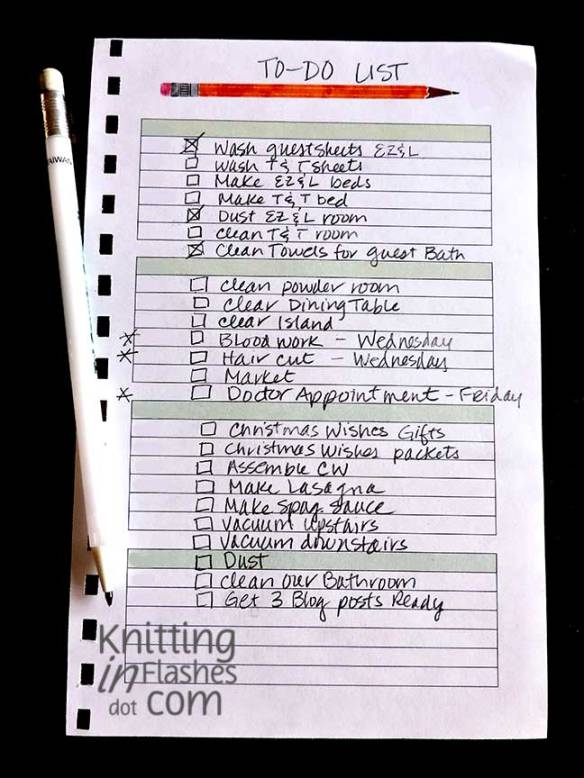 TO-DO LIST
Wash guest sheets EZ&L
Wash T&T Sheets
Make EZ&L beds
Make T&T bed
Dust EZ&L room
Clean T&T room
Clean Towels for guest Bath
Clean powder room
Clear Dining Table
Clear Island
Blood work - Wednesday
Hair cut - Wednesday
Market
Doctor Appointment - Friday
Christmas Wishes Gifts
Christmas Wishes packets
Assemble CW
Make Lasagna
Make Spag Sauce
Vacuum upstairs
Vacuum downstairs
Dust
Clean our Bathroom
Get 3 Blog posts Ready
TAIWAN
Knitting
in Flashes
dot com